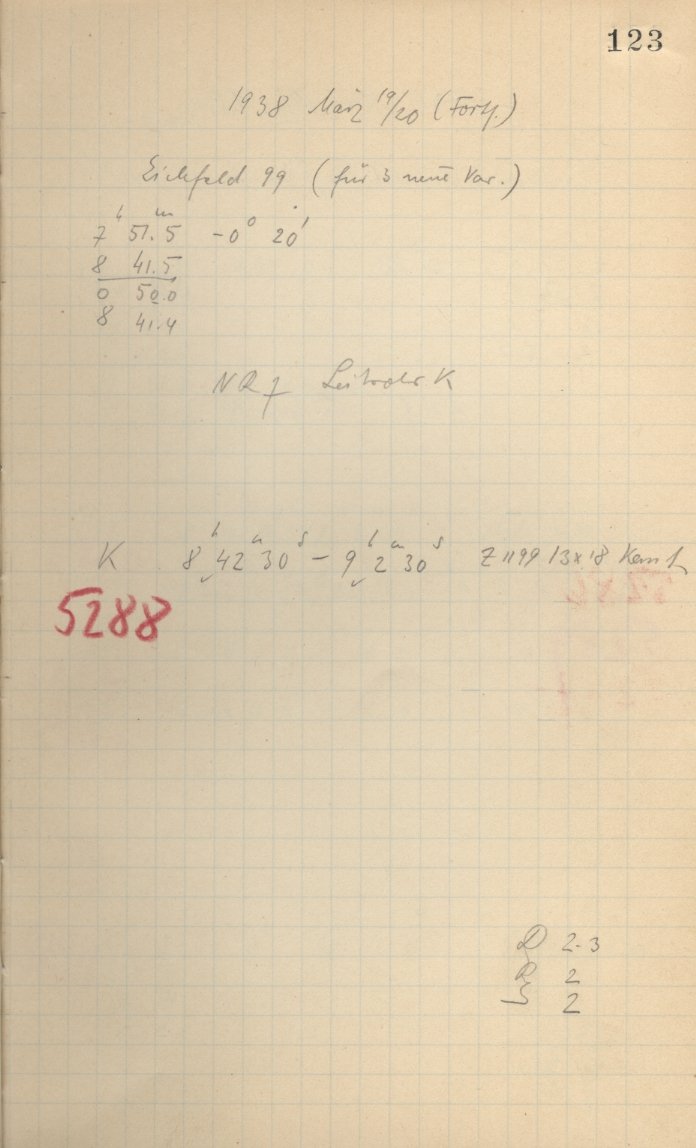 123
1938 März 19/20 (Forts.)
Eichfeld 99 (für 3 neue Var.)
7ʰ 51.ᵐ5 -0° 20'
8 41.5
0 50.0
8 41.4
K 8ʰ 42ᵐ 30ˢ - 9ʰ 2ᵐ 30ˢ Z 1199 13x18
5288
D 2-3
2
2